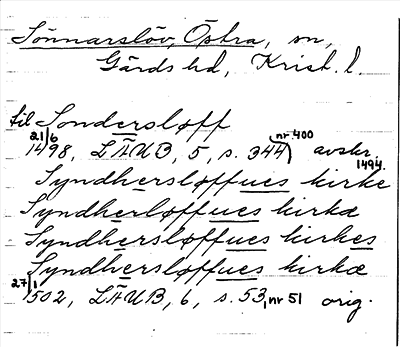 Sönnarslöv, Östra, sn,
Gärds hd, Krist. l.
til Sondersløff
21/6 1498, LÄUB, 5, s. 344, nr 400 avskr. 1494.
Syndhersløffues kirke
Syndherløffues kirkæ
Syndhersløffues kirkes
Syndhersløffues kirkæ
27/1 1502, LÄUB, 6, s. 53, nr 51 orig.